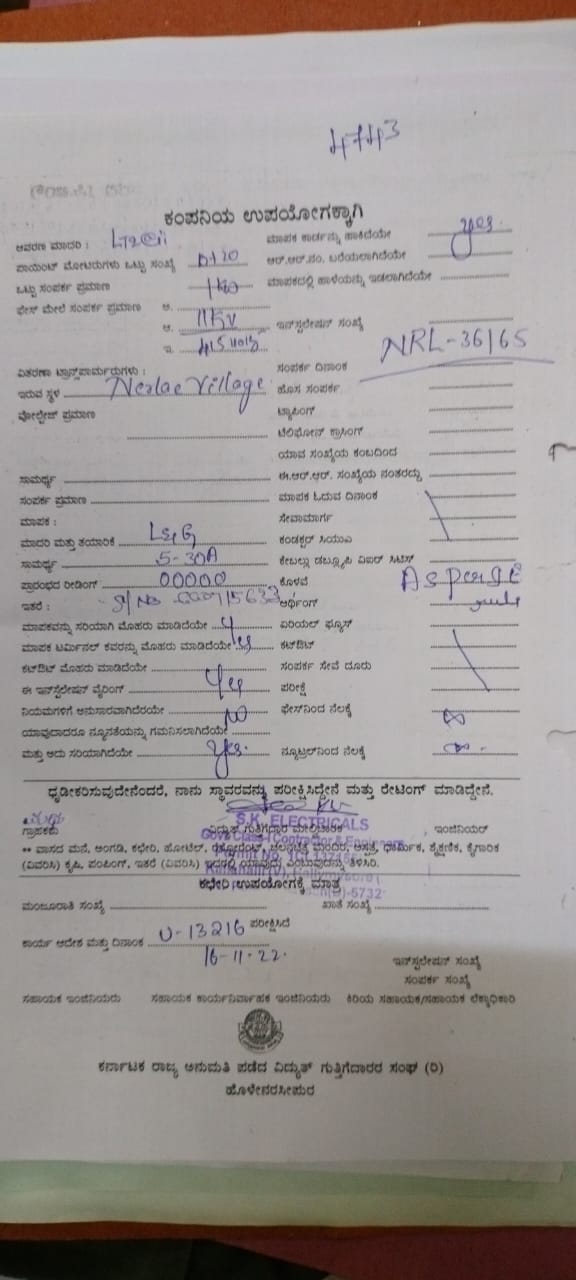 4743
ಕಂಪನಿಯ ಉಪಯೋಗಕ್ಕಾಗಿ
ಆವರಣ ಮಾದರಿ : ಮಾಪಕ ಕಾರ್ಡನ್ನು ಹಾಕಿದೆಯೇ yes.
ಪಾಯಿಂಟ್ ಮೋಟರುಗಳು ಒಟ್ಟು ಸಂಖ್ಯೆ ಆರ್.ಆರ್.ನಂ. ಬರೆಯಲಾಗಿದೆಯೇ
ಒಟ್ಟು ಸಂಪರ್ಕ ಪ್ರಮಾಣ ಮಾಪಕದಲ್ಲಿ ಹಾಳೆಯನ್ನು ಇಡಲಾಗಿದೆಯೇ
ಫೇಸ್ ಮೇಲೆ ಸಂಪರ್ಕ ಪ್ರಮಾಣ ಅ.
ಆ. 11kv ಇನ್‌ಸ್ಟಲೇಷನ್ ಸಂಖ್ಯೆ
ಇ. 415 volts NRL-36165
ವಿತರಣಾ ಟ್ರಾನ್ಸ್‌ಫಾರ್ಮರುಗಳು : ಸಂಪರ್ಕ ದಿನಾಂಕ
ಇರುವ ಸ್ಥಳ Village ಹೊಸ ಸಂಪರ್ಕ
ವೋಲ್ಟೇಜ್ ಪ್ರಮಾಣ ಟ್ಯಾಪಿಂಗ್
ಟೆಲಿಫೋನ್ ಕ್ರಾಸಿಂಗ್
ಯಾವ ಸಂಖ್ಯೆಯ ಕಂಬದಿಂದ
ಸಾಮರ್ಥ್ಯ ಈ.ಆರ್.ಆರ್. ಸಂಖ್ಯೆಯ ನಂತರದ್ದು
ಸಂಪರ್ಕ ಪ್ರಮಾಣ ಮಾಪಕ ಓದುವ ದಿನಾಂಕ
ಮಾಪಕ : ಸೇವಾಮಾರ್ಗ
ಮಾದರಿ ಮತ್ತು ತಯಾರಿಕೆ L&G ಕಂಡಕ್ಟರ್ ಸಿಯುಎ
ಸಾಮರ್ಥ್ಯ 5-30A ಕೇಬಲ್ಲು ಡಬ್ಲ್ಯೂಪಿ ವಿಐಆರ್
ಪ್ರಾರಂಭದ ರೀಡಿಂಗ್ 00000 ಕೊಳವೆ As per I.E
ಇತರೆ : S/No ಅರ್ಥಿಂಗ್
ಮಾಪಕವನ್ನು ಸರಿಯಾಗಿ ಮೊಹರು ಮಾಡಿದೆಯೇ ಏರಿಯಲ್ ಫ್ಯೂಸ್
ಮಾಪಕ ಟರ್ಮಿನಲ್ ಕವರನ್ನು ಮೊಹರು ಮಾಡಿದೆಯೇ ಕಟ್‌ಔಟ್
ಕಟ್‌ಔಟ್ ಮೊಹರು ಮಾಡಿದೆಯೇ ಸಂಪರ್ಕ ಸೇವೆ ದೂರು
ಈ ಇನ್‌ಸ್ಟಲೇಷನ್ ವೈರಿಂಗ್ yes ಪರೀಕ್ಷೆ
ನಿಯಮಗಳಿಗೆ ಅನುಸಾರವಾಗಿದೆರಯೇ No ಫೇಸ್‌ನಿಂದ ನೆಲಕ್ಕೆ ∞
ಯಾವುದಾದರೂ ನ್ಯೂನತೆಯನ್ನು ಗಮನಿಸಲಾಗಿದೆಯೇ
ಮತ್ತು ಅದು ಸರಿಯಾಗಿದೆಯೇ yes. ನ್ಯೂಟ್ರಲ್‌ನಿಂದ ನೆಲಕ್ಕೆ ∞.
ಧೃಡೀಕರಿಸುವುದೇನೆಂದರೆ, ನಾನು ಸ್ಥಾವರವನ್ನು ಪರೀಕ್ಷಿಸಿದ್ದೇನೆ ಮತ್ತು ರೇಟಿಂಗ್ ಮಾಡಿದ್ದೇನೆ.
S.K. ELECTRICALS
ಗ್ರಾಹಕರು ವಿದ್ಯುತ್ ಗುತ್ತಿಗೆದಾರ ಮೇಲ್ವಿಚಾರಕ ಇಂಜಿನಿಯರ್
** ವಾಸದ ಮನೆ, ಅಂಗಡಿ, ಕಛೇರಿ, ಹೋಟೆಲ್, ರೆಸ್ಟೋರೆಂಟ್, ಚಲನಚಿತ್ರ ಮಂದಿರ, ಆಸ್ಪತ್ರೆ, ಧಾರ್ಮಿಕ, ಶೈಕ್ಷಣಿಕ, ಕೈಗಾರಿಕೆ
(ವಿವರಿಸಿ) ಕೃಷಿ, ಪಂಪಿಂಗ್, ಇತರೆ (ವಿವರಿಸಿ) ಇದರಲ್ಲಿ ಯಾವುದು ಎಂಬುವುದನ್ನು ತಿಳಿಸಿರಿ.
ಕಛೇರಿ ಉಪಯೋಗಕ್ಕೆ ಮಾತ್ರ
ಮಂಜೂರಾತಿ ಸಂಖ್ಯೆ ಖಾತೆ ಸಂಖ್ಯೆ
ಕಾರ್ಯ ಆದೇಶ ಮತ್ತು ದಿನಾಂಕ U-13216 ಪರೀಕ್ಷಿಸಿದೆ
16-11-22.
ಇನ್‌ಸ್ಟಲೇಷನ್ ಸಂಖ್ಯೆ
ಸಂಪರ್ಕ ಸಂಖ್ಯೆ
ಸಹಾಯಕ ಇಂಜಿನಿಯರು ಸಹಾಯಕ ಕಾರ್ಯನಿರ್ವಾಹಕ ಇಂಜಿನಿಯರು ಕಿರಿಯ ಸಹಾಯಕ/ಸಹಾಯಕ ಲೆಕ್ಕಾಧಿಕಾರಿ
ಕರ್ನಾಟಕ ರಾಜ್ಯ ಅನುಮತಿ ಪಡೆದ ವಿದ್ಯುತ್ ಗುತ್ತಿಗೆದಾರರ ಸಂಘ (ರಿ)
ಹೊಳೇನರಸೀಪುರ